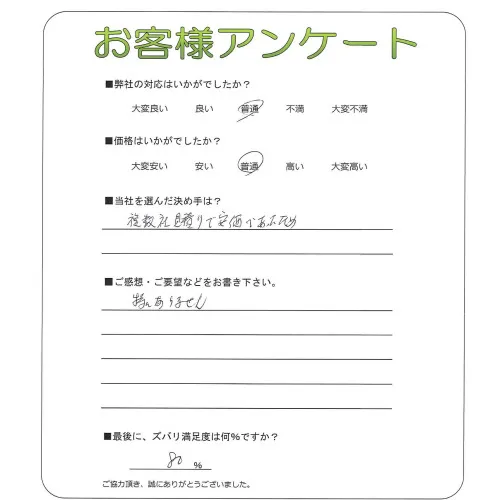 お客様アンケート
■弊社の対応はいかがでしたか？
大変良い 良い 普通 不満 大変不満
■価格はいかがでしたか？
大変安い 安い 普通 高い 大変高い
■当社を選んだ決め手は？
複数社見積りで安価であったため
■ご感想・ご要望などをお書き下さい。
特にありません
■最後に、ズバリ満足度は何%ですか？
80 %
ご協力頂き、誠にありがとうございました。